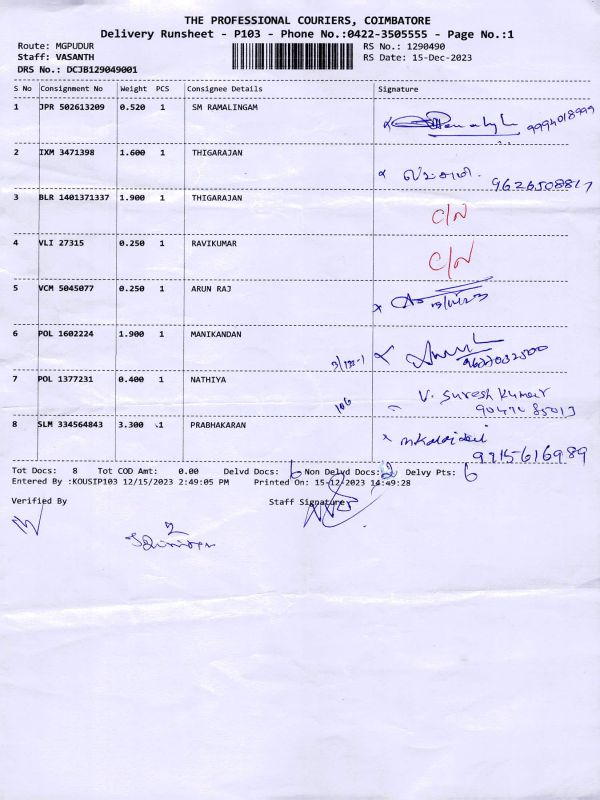 THE PROFESSIONAL COURIERS, COIMBATORE
Delivery Runsheet - P103 - Phone No.:0422-3505555 - Page No.:1
Route: MGPUDUR RS No.: 1290490
Staff: VASANTH RS Date: 15-Dec-2023
DRS No.: DCJB129049001
S No Consignment No Weight PCS Consignee Details Signature
1 JPR 502613209 0.520 1 SM RAMALINGAM
9994018999
2 IXM 3471398 1.600 1 THIGARAJAN
9626508817
3 BLR 1401371337 1.900 1 THIGARAJAN
C/N
4 VLI 27315 0.250 1 RAVIKUMAR
C/N
5 VCM 5045077 0.250 1 ARUN RAJ
6 POL 1602224 1.900 1 MANIKANDAN
9627032500
7 POL 1377231 0.400 1 NATHIYA
V. Suresh Kumar
106 90474 85013
8 SLM 334564843 3.300 1 PRABHAKARAN
9915616989
Tot Docs: 8 Tot COD Amt: 0.00 Delvd Docs: 6 Non Delvd Docs: 2 Delvy Pts: 6
Entered By :KOUSIP103 12/15/2023 2:49:05 PM Printed On: 15-12-2023 14:49:28
Verified By Staff Signature